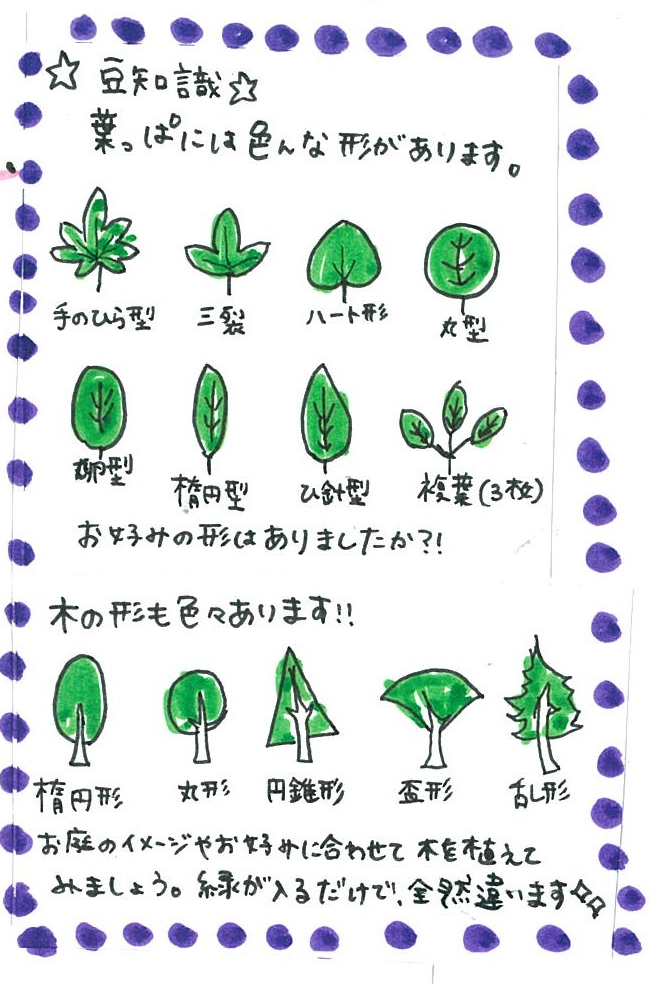 ☆ 豆知識 ☆
葉っぱには色んな形があります。
手のひら型 三裂 ハート形 丸型
卵型 楕円型 ひ針型 複葉(3枚)
お好みの形はありましたか?!
木の形も色々あります!!
楕円形 丸形 円錐形 盃形 乱形
お庭のイメージやお好みに合わせて木を植えて
みましょう。緑が入るだけで、全然違います☆☆